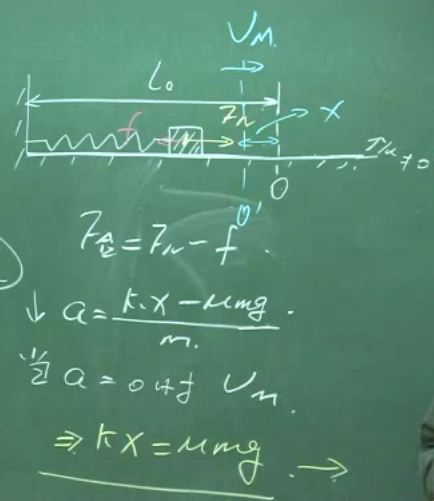 Vₘ
l₀
F_N
x
f
μ≠0
O
O'
F合=F_N-f.
↓a=k·x-μmg/m.
当a=0时Vₘ.
⇒kx=μmg.→